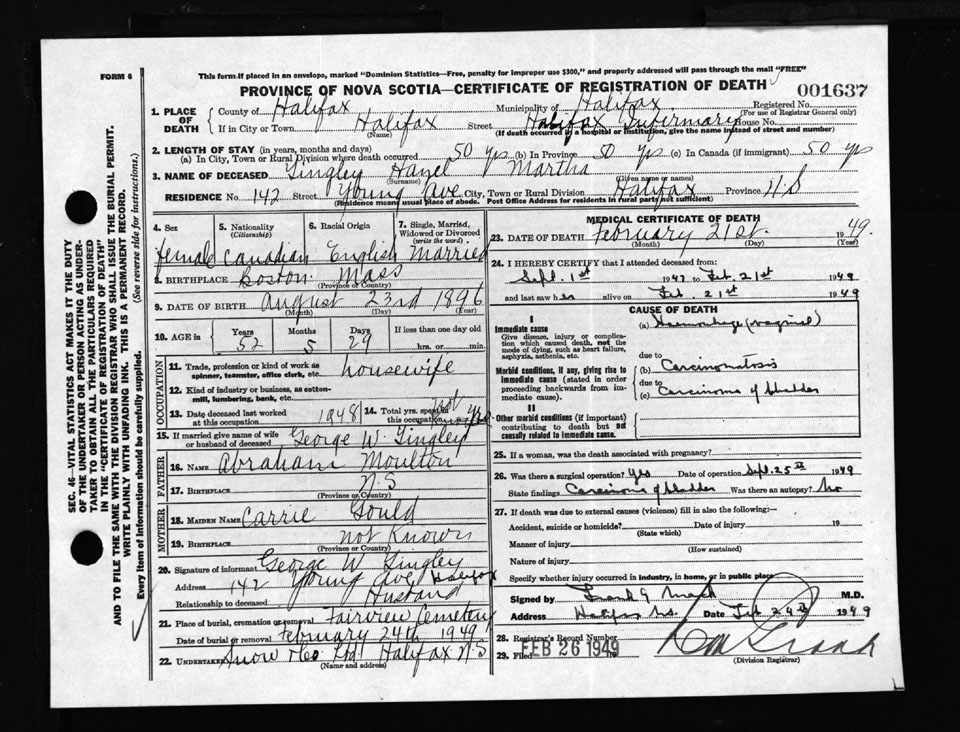 FORM 6
This form if placed in an envelope, marked "Dominion Statistics—Free, penalty for improper use $300," and properly addressed will pass through the mail "FREE"
PROVINCE OF NOVA SCOTIA—CERTIFICATE OF REGISTRATION OF DEATH
001637
SEC. 46—VITAL STATISTICS ACT MAKES IT THE DUTY
OF THE UNDERTAKER OR PERSON ACTING AS UNDER-
TAKER TO OBTAIN ALL THE PARTICULARS REQUIRED
IN THE "CERTIFICATE OF REGISTRATION OF DEATH"
AND TO FILE THE SAME WITH THE DIVISION REGISTRAR WHO SHALL ISSUE THE BURIAL PERMIT.
WRITE PLAINLY WITH UNFADING INK. THIS IS A PERMANENT RECORD.
Every item of information should be carefully supplied. (See reverse side for instructions.)
1. PLACE OF DEATH
County of Halifax Municipality of Halifax Registered No.
(For use of Registrar General only)
If in City or Town Halifax Street Halifax Infirmary House No.
(Name) (If death occurred in a hospital or institution, give the name instead of street and number)
2. LENGTH OF STAY (in years, months and days)
(a) In City, Town or Rural Division where death occurred 50 yrs (b) In Province 50 yrs (c) In Canada (if immigrant) 50 yrs
3. NAME OF DECEASED Tingley Hazel Martha
(Surname) (Given name or names)
RESIDENCE No. 142 Street Young Ave City, Town or Rural Division Halifax Province N.S
(Residence means usual place of abode. Post Office Address for residents in rural parts not sufficient)
4. Sex
5. Nationality (Citizenship)
6. Racial Origin
7. Single, Married, Widowed or Divorced (write the word)
female Canadian English Married
8. BIRTHPLACE Boston Mass
(Province or Country)
9. DATE OF BIRTH August 23rd 1896
(Month) (Day) (Year)
10. AGE in Years Months Days If less than one day old
52 5 29 hrs. or min.
11. Trade, profession or kind of work as spinner, teamster, office clerk, etc. housewife
12. Kind of industry or business, as cotton-mill, lumbering, bank, etc.
13. Date deceased last worked at this occupation 1948
14. Total yrs. spent in this occupation
15. If married give name of wife or husband of deceased George W. Tingley
FATHER
16. NAME Abraham Moulton
17. BIRTHPLACE N.S
(Province or Country)
MOTHER
18. MAIDEN NAME Carrie Gould
19. BIRTHPLACE not Known
(Province or Country)
20. Signature of informant George W Tingley
Address 142 Young Ave Halifax
Relationship to deceased Husband
21. Place of burial, cremation or removal Fairview Cemetery
Date of burial or removal February 24th 1949
22. UNDERTAKER Snow & Co Ltd Halifax N.S
(Name and address)
MEDICAL CERTIFICATE OF DEATH
23. DATE OF DEATH February 21st. 1949.
(Month) (Day) (Year)
24. I HEREBY CERTIFY that I attended deceased from:
Sept. 1st 1947 to Feb. 21st 1949
and last saw her alive on Feb. 21st 1949
CAUSE OF DEATH
I
Immediate cause
Give disease, injury or complication which caused death, not the mode of dying, such as heart failure, asphyxia, asthenia, etc.
(a) Haemorrhage (vaginal)
due to
Morbid conditions, if any, giving rise to immediate cause (stated in order proceeding backwards from immediate cause).
(b) Carcinomatosis
due to
(c) Carcinoma of bladder
II
Other morbid conditions (if important) contributing to death but not causally related to immediate cause.
25. If a woman, was the death associated with pregnancy?
26. Was there a surgical operation? Yes Date of operation Sept. 25th 1949
State findings Carcinoma of bladder Was there an autopsy? No
27. If death was due to external causes (violence) fill in also the following:—
Accident, suicide or homicide? Date of injury 19
(State which)
Manner of injury
(How sustained)
Nature of injury
Specify whether injury occurred in industry, in home, or in public place
Signed by M.D.
Address Halifax, N.S. Date Feb 24th 1949
28. Registrar's Record Number
29. Filed FEB 26 1949
(Division Registrar)